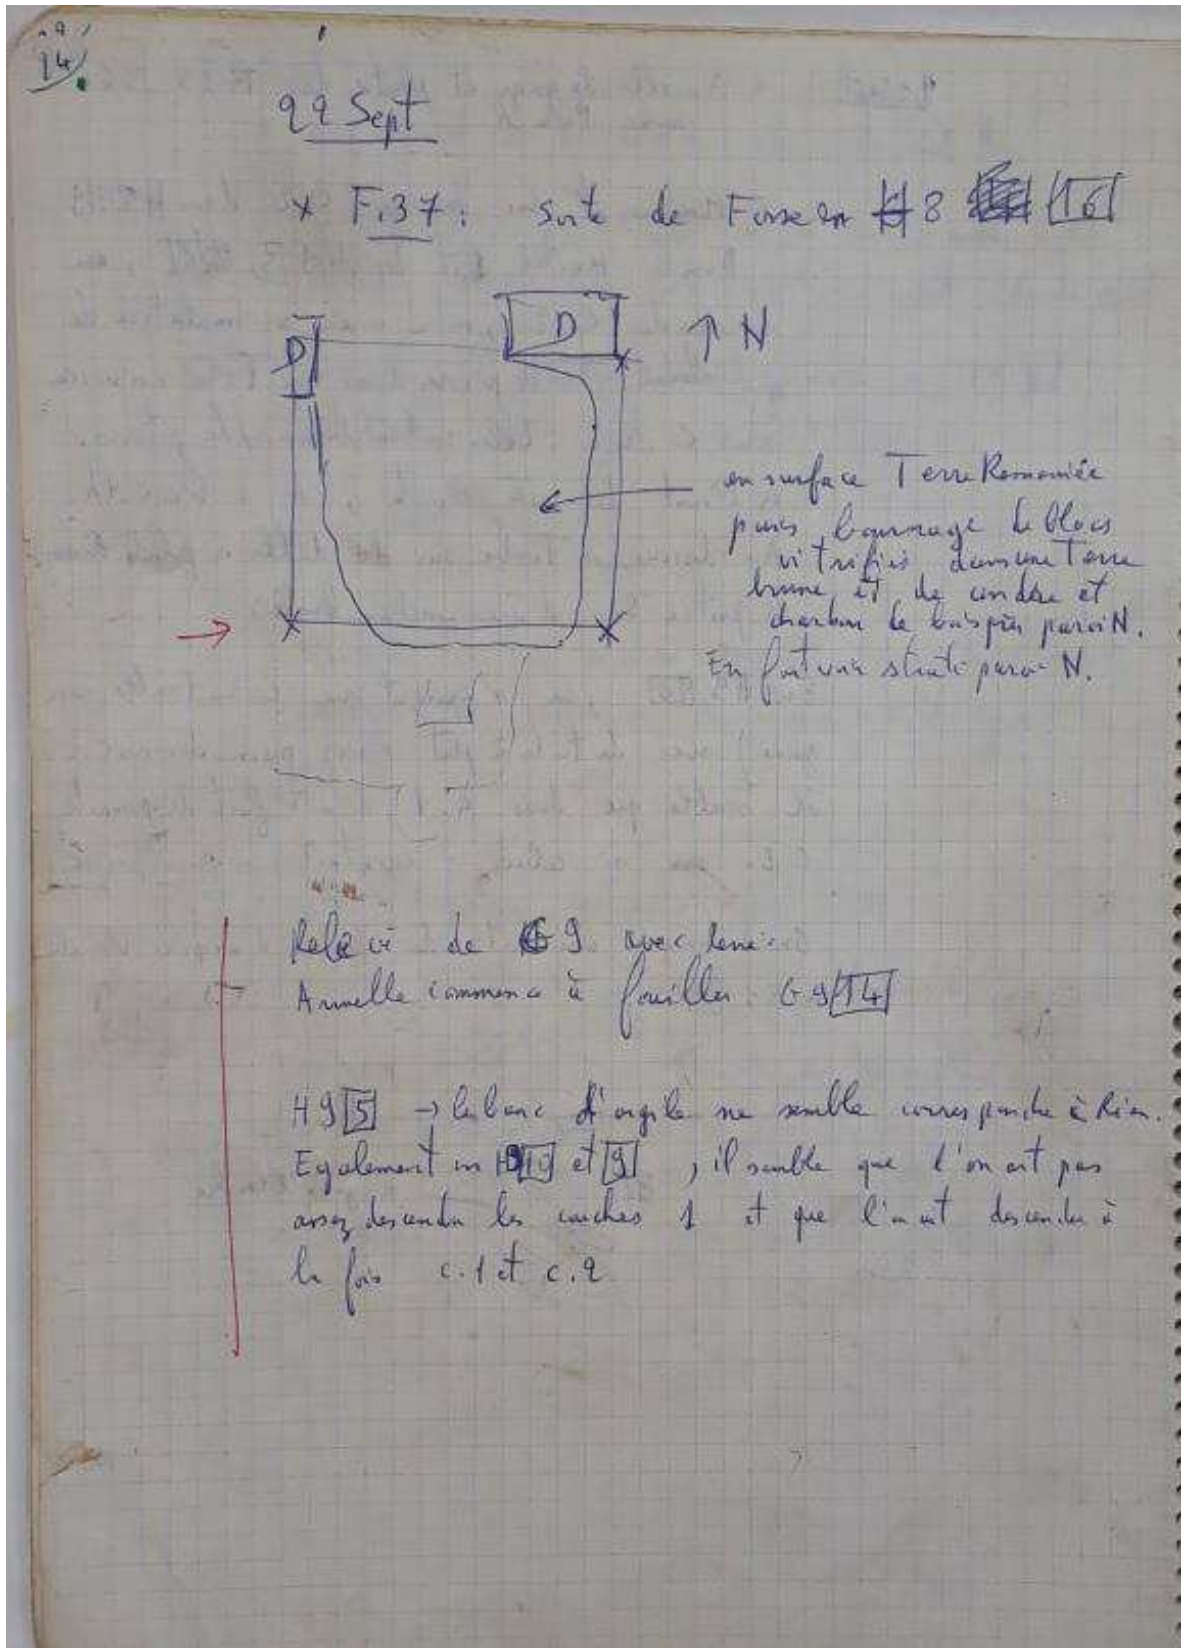 14
22 Sept
x F.37 : Sorte de Fosse en H 8 16
D
D
↑ N
en surface Terre Remaniée
puis bourrage de blocs
vitrifiés dans une Terre
brune et de cendre et
charbon de bois près paroi N.
En fait voir strati paroi N.
Relevé de G9 avec
Armelle commence à fouiller G9 14
H9 5 → le banc d'argile ne semble correspondre à Rien.
Egalement en 10 et 9 , il semble que l'on ait pas
assez descendu les couches 1 et que l'on ait descendu à
la fois c.1 et c.2